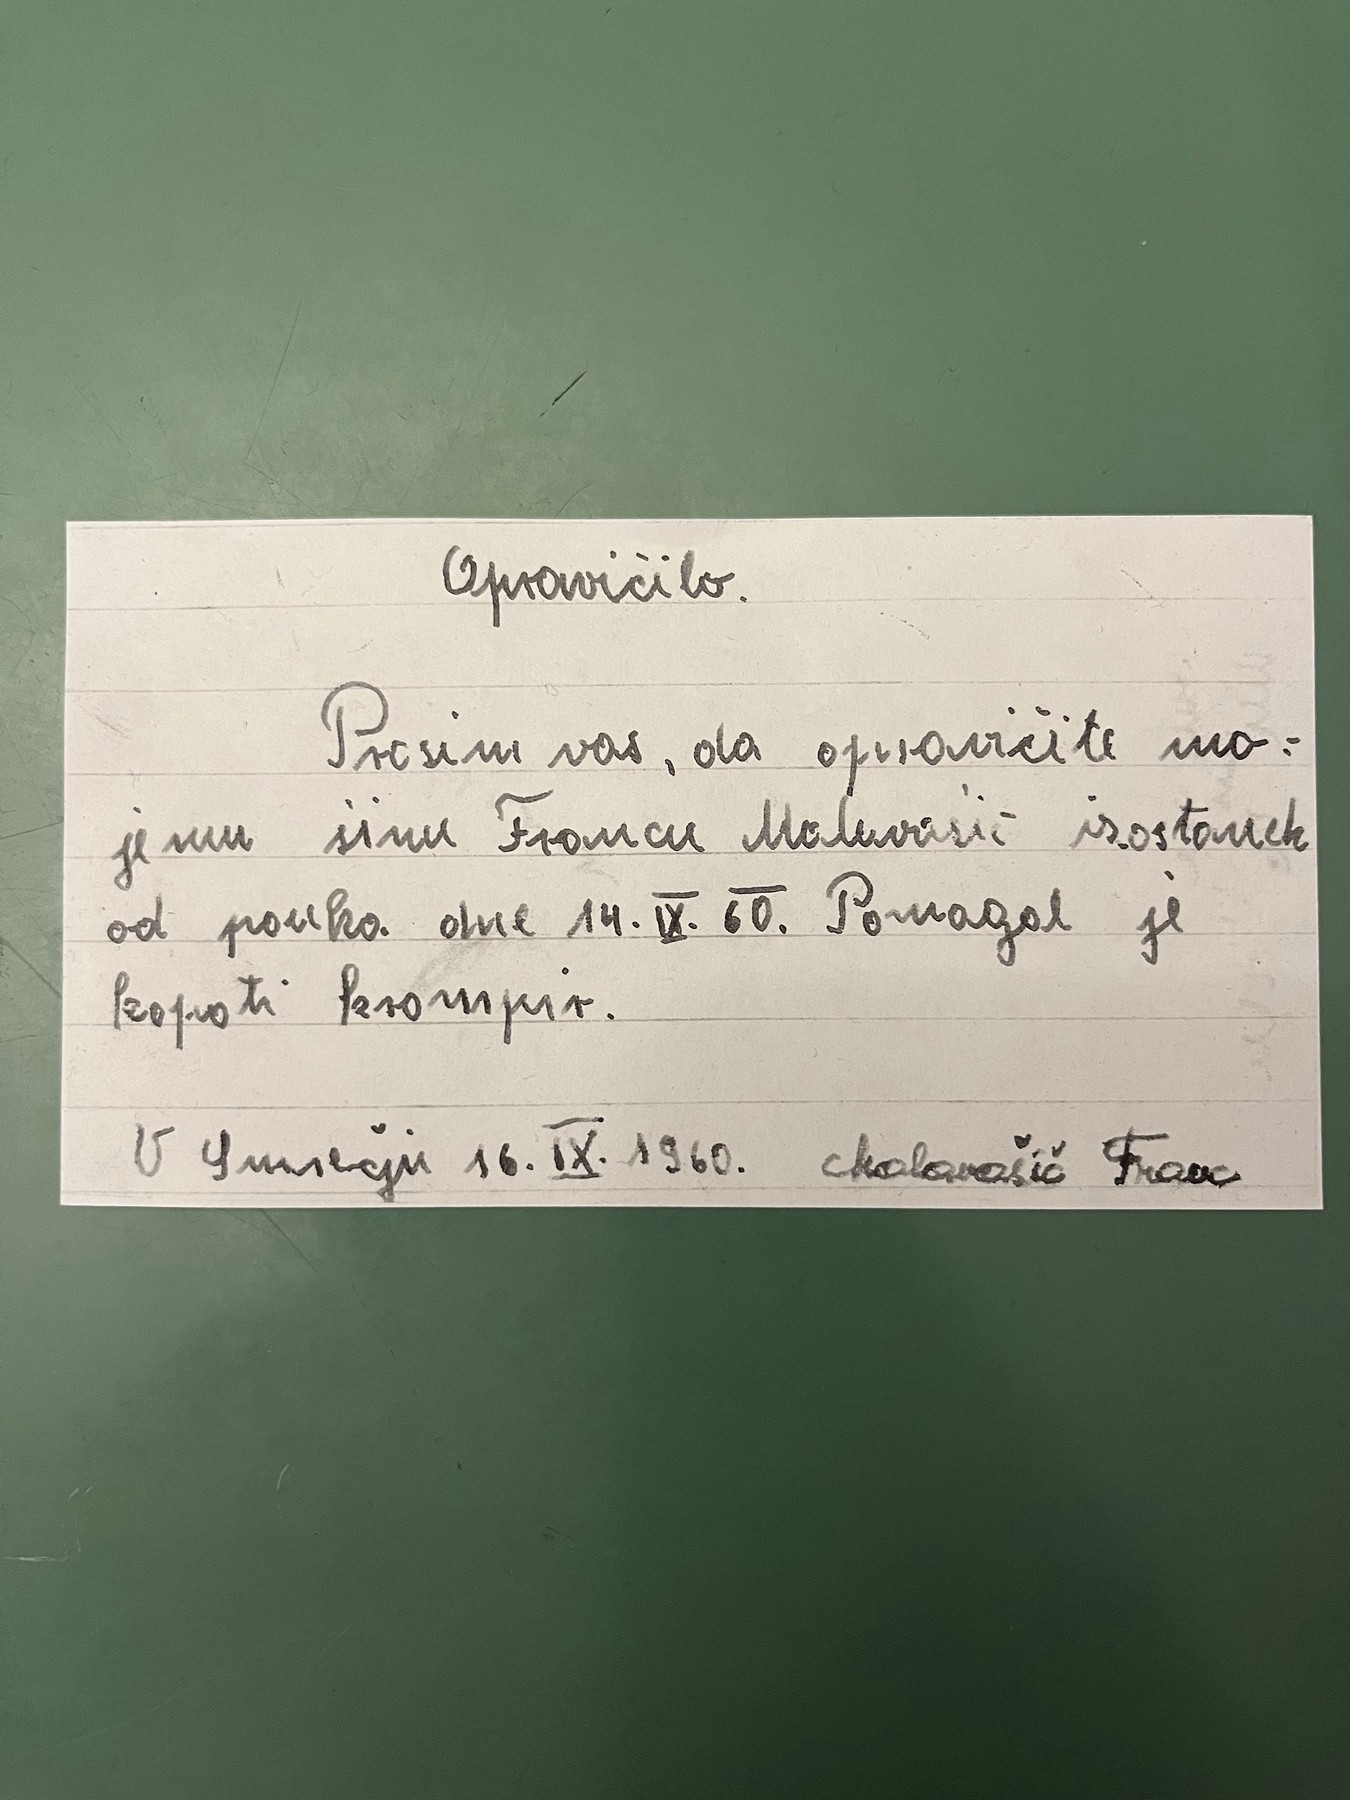 Opravičilo.
Prosim vas, da opravičite mo=
jemu sinu Francu Malavašič izostanek
od pouka dne 14. IX. 60. Pomagal je
kopati krompir.
V Smrečju 16. IX. 1960. Malavašič Franc